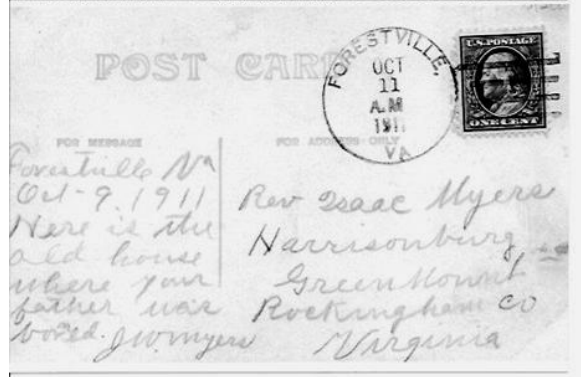 POST CARD
FORESTVILLE,
OCT
11
A.M
1911
VA
U.S. POSTAGE
ONE CENT
FOR MESSAGE
FOR ADDRESS ONLY
Forestville Va
Oct-9. 1911
Here is the
old house
where your
father was
borned. J W Myers
Rev Isaac Myers
Harrisonburg
Green Mount
Rockingham Co
Virginia